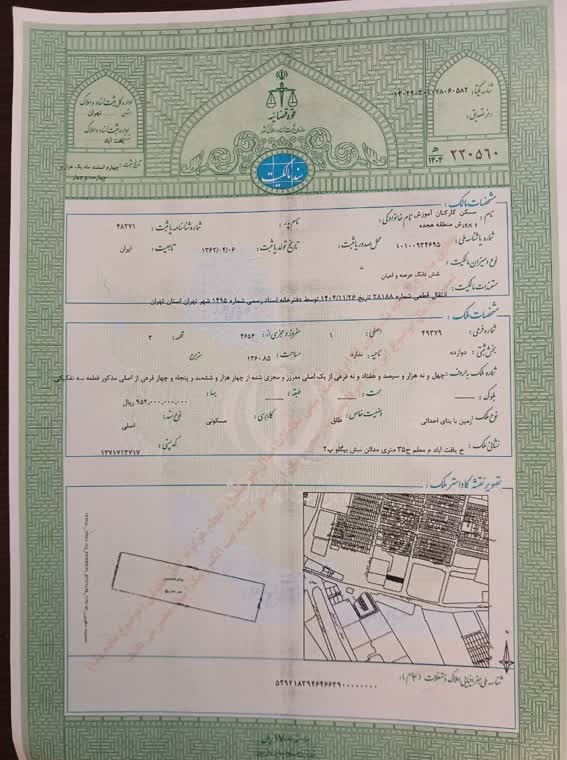 شناسه یکتا:
رمز تصدیق:
اداره کل ثبت اسناد و املاک
استان تهران
اداره ثبت اسناد و املاک
یافت آباد
قوه قضائیه
سازمان ثبت اسناد و املاک کشور
ه‍ ۱۴۰۲ ۲۳۰۵۶۰
تاریخ ثبت: چهارم اسفند ماه یک هزار و چهارصد و چهار
سند مالکیت
مشخصات مالک:
نام: مسکن کارکنان آموزش و پرورش منطقه هجده نام خانوادگی: نام پدر: شماره شناسنامه یا ثبت: ۳۸۲۷۱
شماره یا شناسه ملی: ۱۰۱۰۰۹۳۴۶۹۵ محل صدور یا ثبت: تاریخ تولد یا ثبت: ۱۳۶۲/۰۴/۰۶ تابعیت: ایران
نوع و میزان مالکیت: شش دانگ عرصه و اعیان
مستندات مالکیت: انتقال قطعی شماره ۲۸۱۸۸ تاریخ ۱۴۰۴/۱۱/۲۶ توسط دفترخانه اسناد رسمی شماره ۱۴۹۵ شهر تهران استان تهران
مشخصات ملک:
شماره فرعی: ۴۹۳۷۹ اصلی: ۱ مفروز و مجزی از: ۴۶۵۴ قطعه: ۳
بخش ثبتی: دوازده ناحیه: ندارد مساحت: ۱۳۶۰.۸۵ مترمربع
شماره ملک به حروف: چهل و نه هزار و سیصد و هفتاد و نه فرعی از یک اصلی مفروز و مجزی شده از چهار هزار و ششصد و پنجاه و چهار فرعی از اصلی مذکور قطعه سه تفکیکی
بلوک: سمت: طبقه: بها: ۹۵۲,۰۰۰,۰۰۰,۰۰۰ ریال
نوع ملک: زمین با بنای احداثی وضعیت خاص: طلق کاربری: مسکونی نوع سند: اصلی
نشانی ملک: خ یافت آباد م معلم خ۳۵ متری مدائن نبش بیگلو پ۲ کد پستی: ۱۳۷۱۷۱۳۷۱۷
تصویر نقشه کاداستر ملک:
شناسه ملی جغرافیایی املاک و مستغلات (جام):